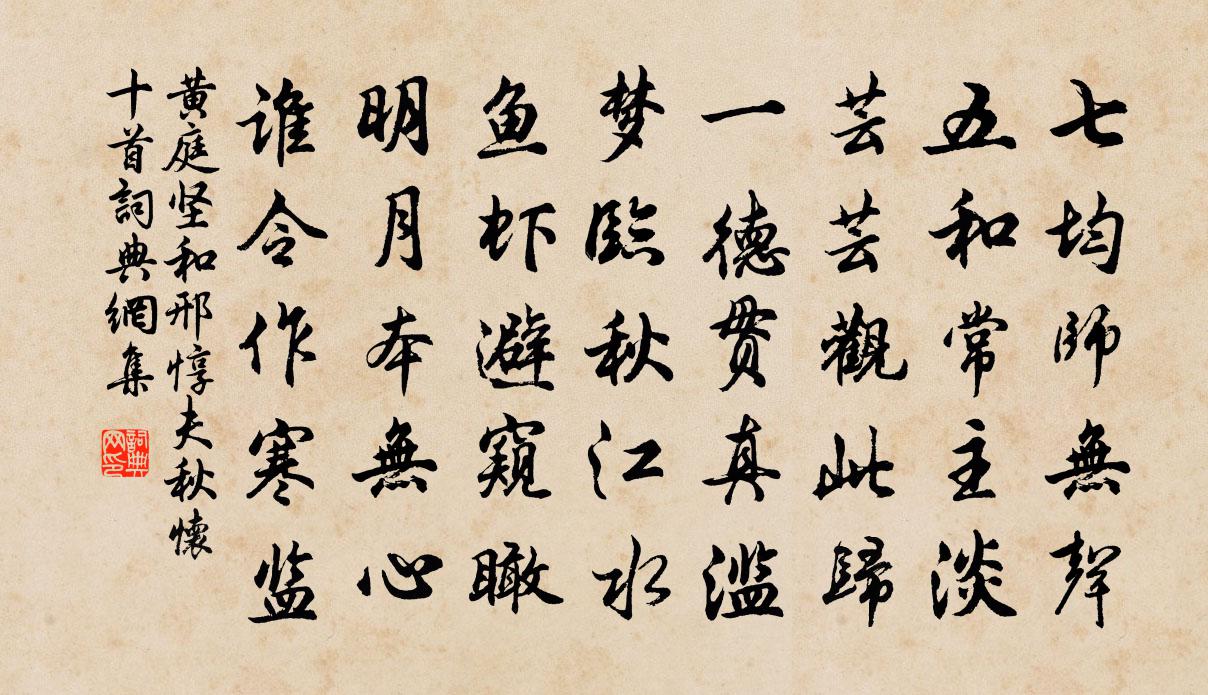 七均师無聲
五和常主淡
芸芸觀此歸
一德贯真濫
梦臨秋江水
鱼虾避窺瞰
明月本無心
谁令作寒监
黄庭坚和邢惇夫秋懷
十首詞典網集
詞典网印